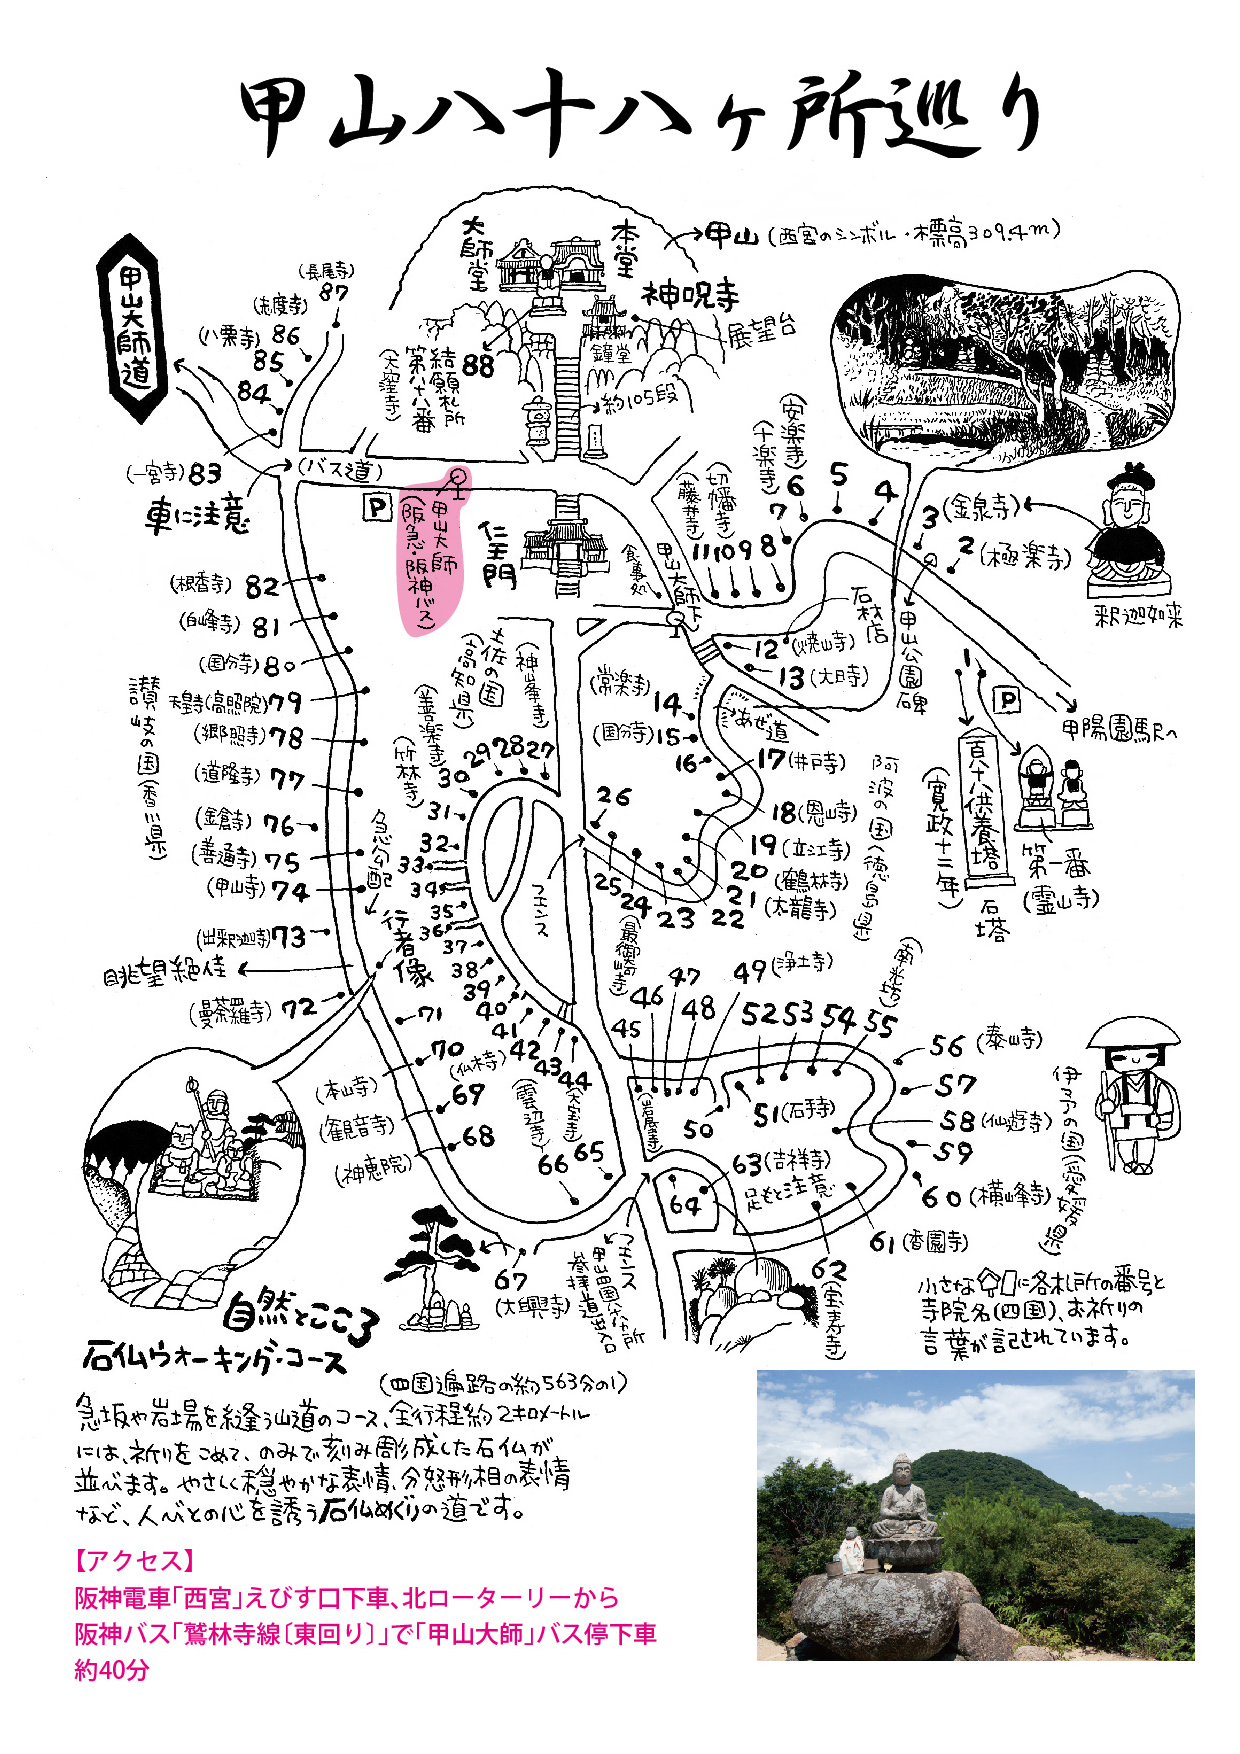 甲山八十八ヶ所巡り
甲山大師道
大師堂
本堂
甲山(西宮のシンボル・標高309.4m)
神呪寺
展望台
鐘堂
約105段
結願札所
第八十八番
(大窪寺)
88
(長尾寺)
87
(志度寺)
86
(八栗寺)
85
84
(一宮寺)83
車に注意
(バス道)
P
甲山大師
(阪急・阪神バス)
仁王門
食事処
甲山大師下
(安楽寺)
(十楽寺)
(切幡寺)
(藤井寺)
11 10 9 8
7
6
5
4
3(金泉寺)
2(極楽寺)
釈迦如来
石材店
甲山公園碑
12(焼山寺)
13(大日寺)
1
P
甲陽園駅へ
百十八供養塔
(寛政十二年)
石塔
第一番
(霊山寺)
(根香寺)82
(白峰寺)81
(国分寺)80
天皇寺(高照院)79
(郷照寺)78
(道隆寺)77
(金倉寺)76
(善通寺)75
(甲山寺)74
(出釈迦寺)73
眺望絶佳
(曼荼羅寺)72
讃岐の国(香川県)
急勾配
行者像
土佐の国
(高知県)
(神峰寺)
(善楽寺)
(竹林寺)
27
28
29
30
31
32
33
34
35
36
37
38
39
40
41
42
43
44
フェンス
(常楽寺)
14
(国分寺)15
16
あぜ道
17(井戸寺)
18(恩山寺)
19(立江寺)
20(鶴林寺)
21(太龍寺)
22
23
24
25
26
(最御崎寺)
阿波の国(徳島県)
45
46
47
48
49(浄土寺)
50
51(石手寺)
52 53 54 55
(南光坊)
56(泰山寺)
57
58(仙遊寺)
59
60(横峰寺)
61(香園寺)
62
(宝寿寺)
63(吉祥寺)
足もと注意
64
(岩屋寺)
伊予の国(愛媛県)
(大宝寺)
65
(雲辺寺)
66
67
(大興寺)
68
(神恵院)
69
(観音寺)
70
(本山寺)
71
フェンス
小さな に各札所の番号と
寺院名(四国)、お祈りの
言葉が記されています。
自然とこころ
石仏ウォーキング・コース
(四国遍路の約563分の1)
急坂や岩場を縫う山道のコース、全行程約2キロメートル
には、祈りをこめて、のみで刻み彫成した石仏が
並べます。やさしく穏やかな表情、分怒形相の表情
など、人びとの心を誘う石仏めぐりの道です。
【アクセス】
阪神電車「西宮」えびす口下車、北ローターリーから
阪神バス「鷲林寺線〔東回り〕」で「甲山大師」バス停下車
約40分